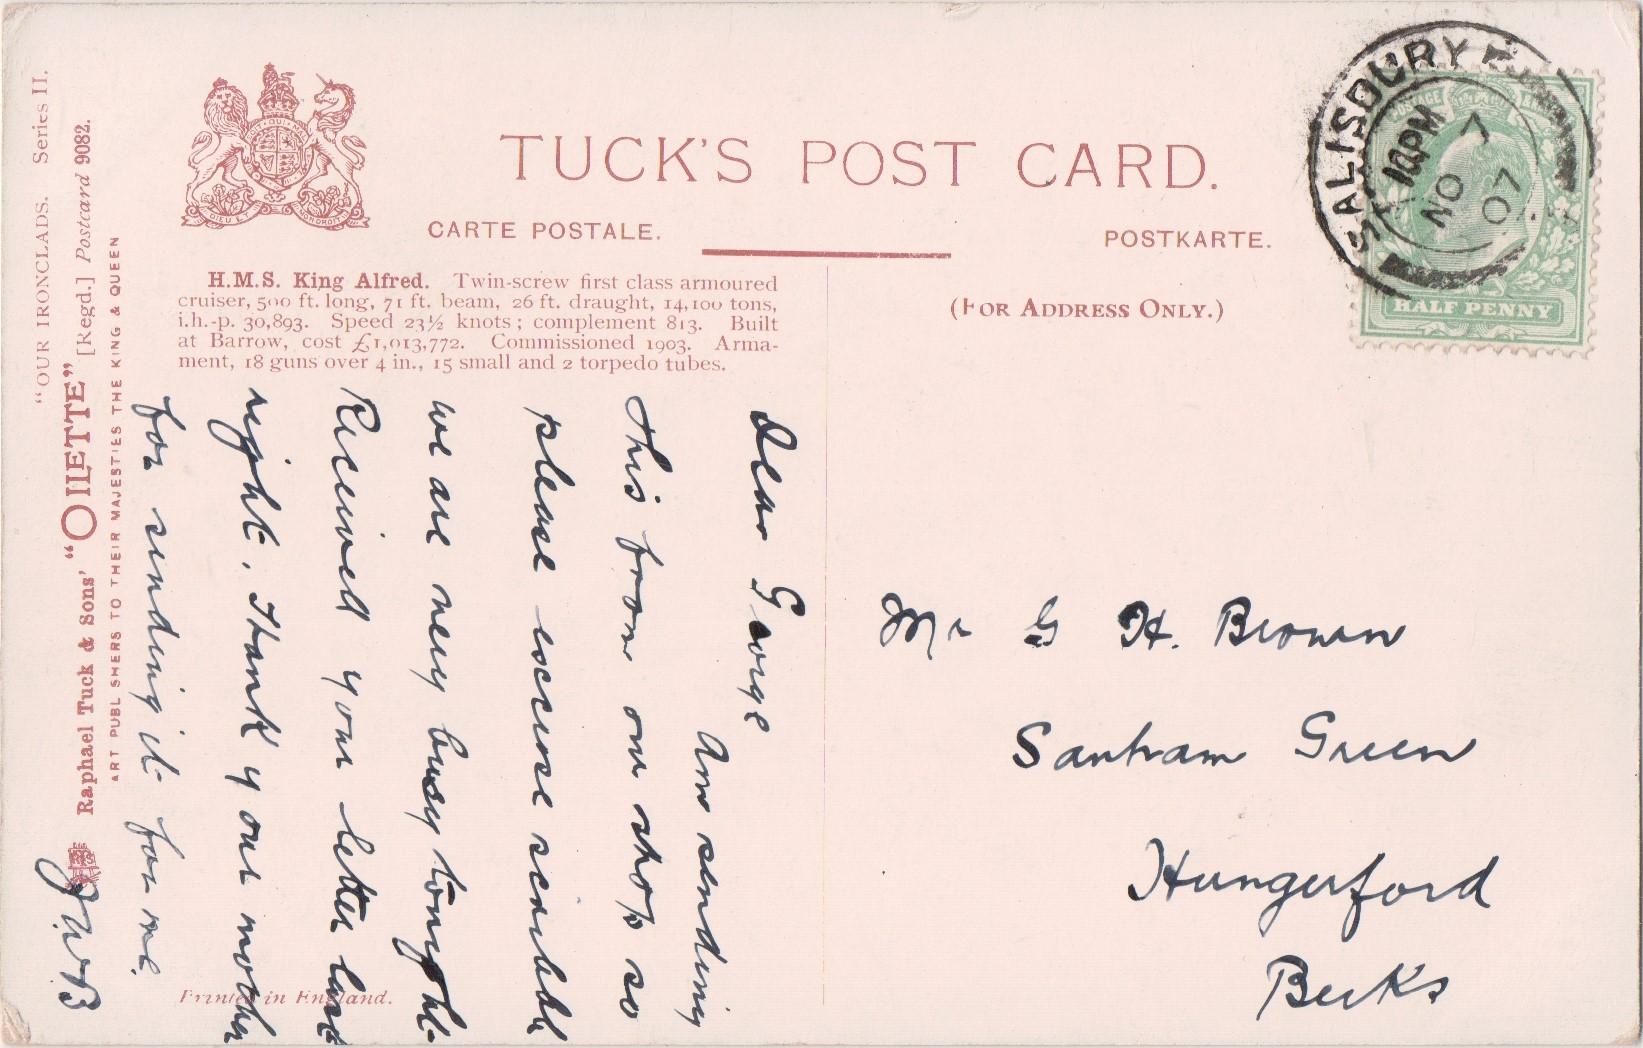 "OUR IRONCLADS. Series II.
Raphael Tuck & Sons' "OILETTE" [Regd.] Postcard 9082.
ART PUBL SHERS TO THEIR MAJESTIES THE KING & QUEEN
DIEU ET MON DROIT
TUCK'S POST CARD.
CARTE POSTALE.
POSTKARTE.
H.M.S. King Alfred. Twin-screw first class armoured
cruiser, 500 ft. long, 71 ft. beam, 26 ft. draught, 14,100 tons,
i.h.-p. 30,893. Speed 23½ knots; complement 813. Built
at Barrow, cost £1,013,772. Commissioned 1903. Arma-
ment, 18 guns over 4 in., 15 small and 2 torpedo tubes.
(FOR ADDRESS ONLY.)
SALISBURY
10PM
NO 7
07
HALF PENNY
Dear George
Am sending
this from our shop so
please excuse scribble
we are very busy tonight
Received your letter last
night. Thank your mother
for sending it for me.
Mr G H. Brown
Santram Green
Hungerford
Berks
Printed in England.